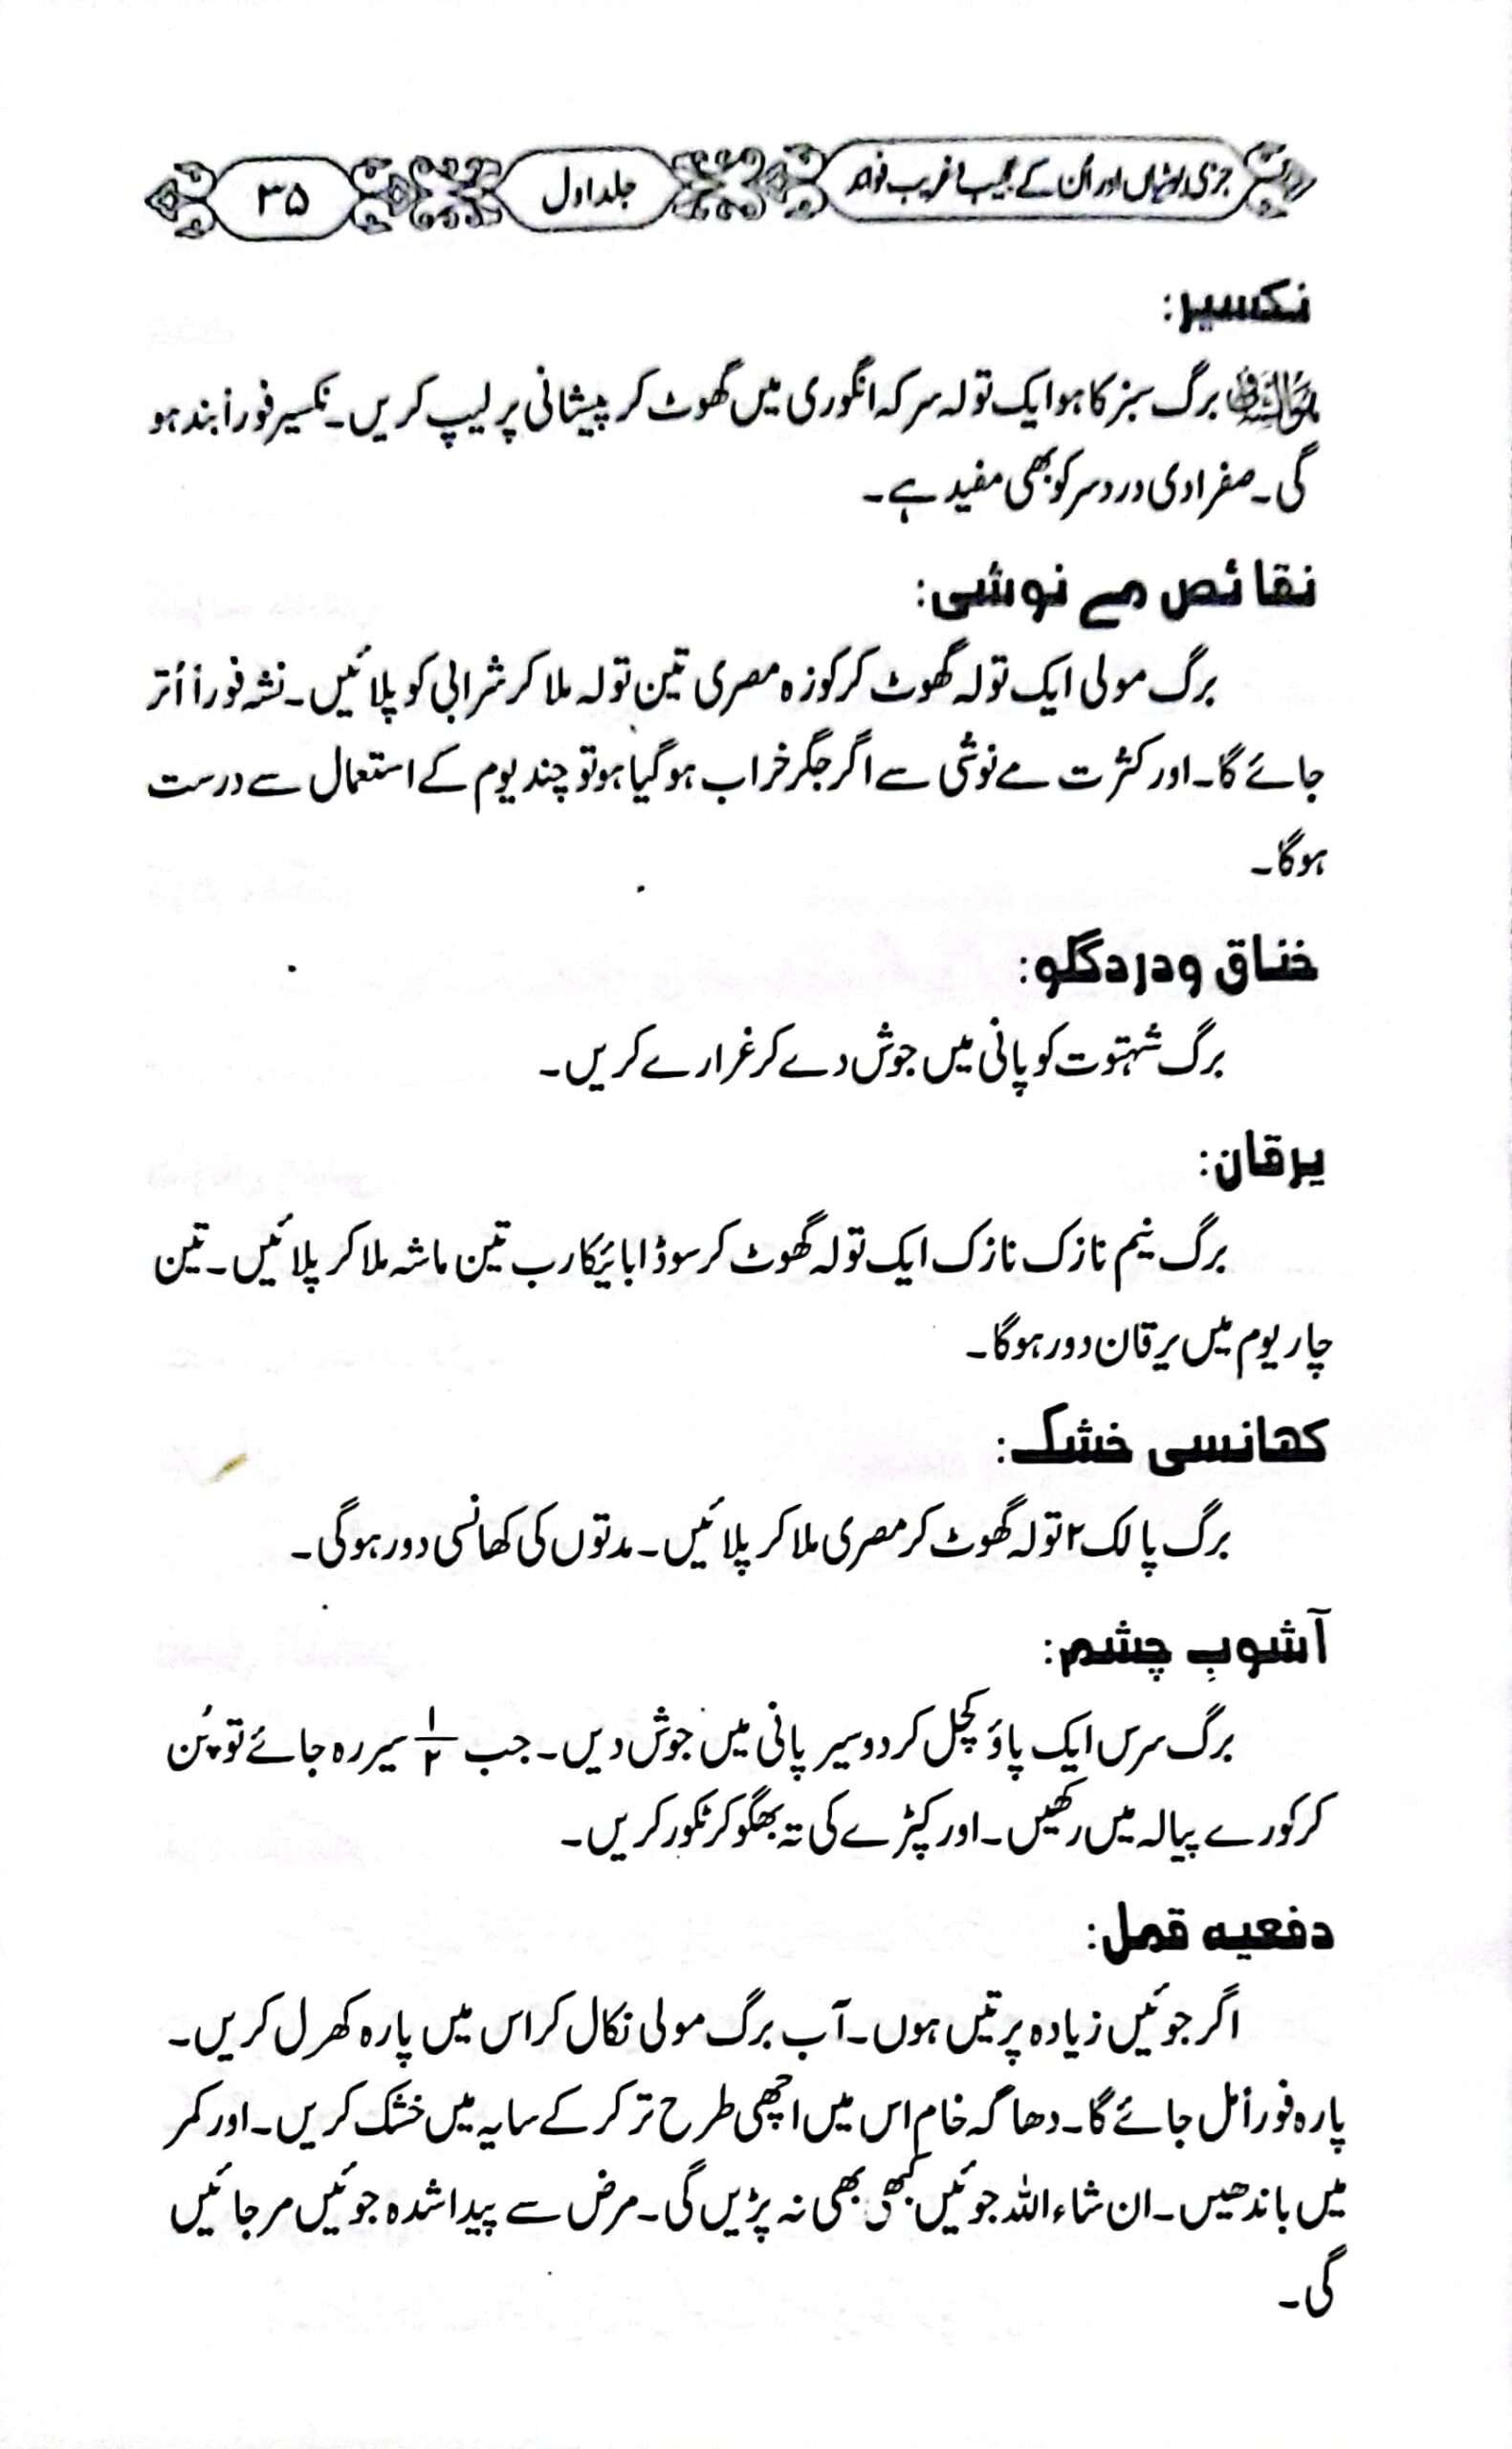 جڑی بوٹیاں اور اُن کے عجیب و غریب فوائد
جلد اول
۳۵
نکسیر:
ھوالشافی برگ سبز کاہو ایک تولہ سرکہ انگوری میں گھوٹ کر پیشانی پر لیپ کریں۔ نکسیر فوراً بند ہو
گی۔ صفراوی درد سر کو بھی مفید ہے۔
نقائص مے نوشی:
برگ مولی ایک تولہ گھوٹ کر کوزہ مصری تین تولہ ملا کر شرابی کو پلائیں۔ نشہ فوراً اُتر
جائے گا۔ اور کثرت مے نوشی سے اگر جگر خراب ہو گیا ہو تو چند یوم کے استعمال سے درست
ہوگا۔
خناق و درد گلو:
برگ شہتوت کو پانی میں جوش دے کر غرارے کریں۔
یرقان:
برگ نیم نازک نازک ایک تولہ گھوٹ کر سوڈا بائیکارب تین ماشہ ملا کر پلائیں۔ تین
چار یوم میں یرقان دور ہوگا۔
کھانسی خشک:
برگ پالک ۲ تولہ گھوٹ کر مصری ملا کر پلائیں۔ مدتوں کی کھانسی دور ہوگی۔
آشوبِ چشم:
برگ سرس ایک پاؤ کچل کر دو سیر پانی میں جوش دیں۔ جب ۱/۲ سیر رہ جائے تو پُن
کر کورے پیالہ میں رکھیں۔ اور کپڑے کی تہ بھگو کر ٹکور کریں۔
دفعیہ قمل:
اگر جوئیں زیادہ پرتیں ہوں۔ آب برگ مولی نکال کر اس میں پارہ کھرل کریں۔
پارہ فوراً مل جائے گا۔ دھاگہ خام اس میں اچھی طرح تر کر کے سایہ میں خشک کریں۔ اور کمر
میں باندھیں۔ ان شاء اللہ جوئیں کبھی بھی نہ پڑیں گی۔ مرض سے پیدا شدہ جوئیں مر جائیں
گی۔